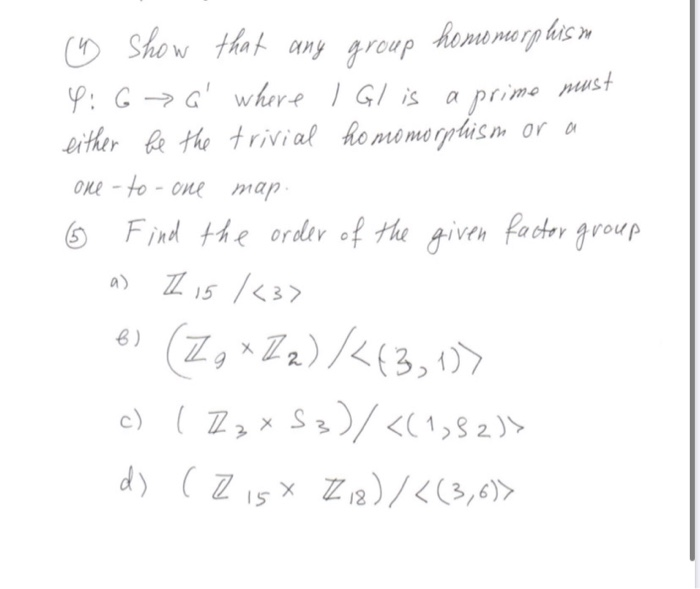 (4) Show that any group homomorphism
φ: G → G' where |G| is a prime must
either be the trivial homomorphism or a
one-to-one map.
(5) Find the order of the given factor group
a) ℤ15 /<3>
b) (ℤ9 × ℤ2) /<(3,1)>
c) (ℤ3 × S3) / <(1,S2)>
d) (ℤ15 × ℤ18) / <(3,6)>